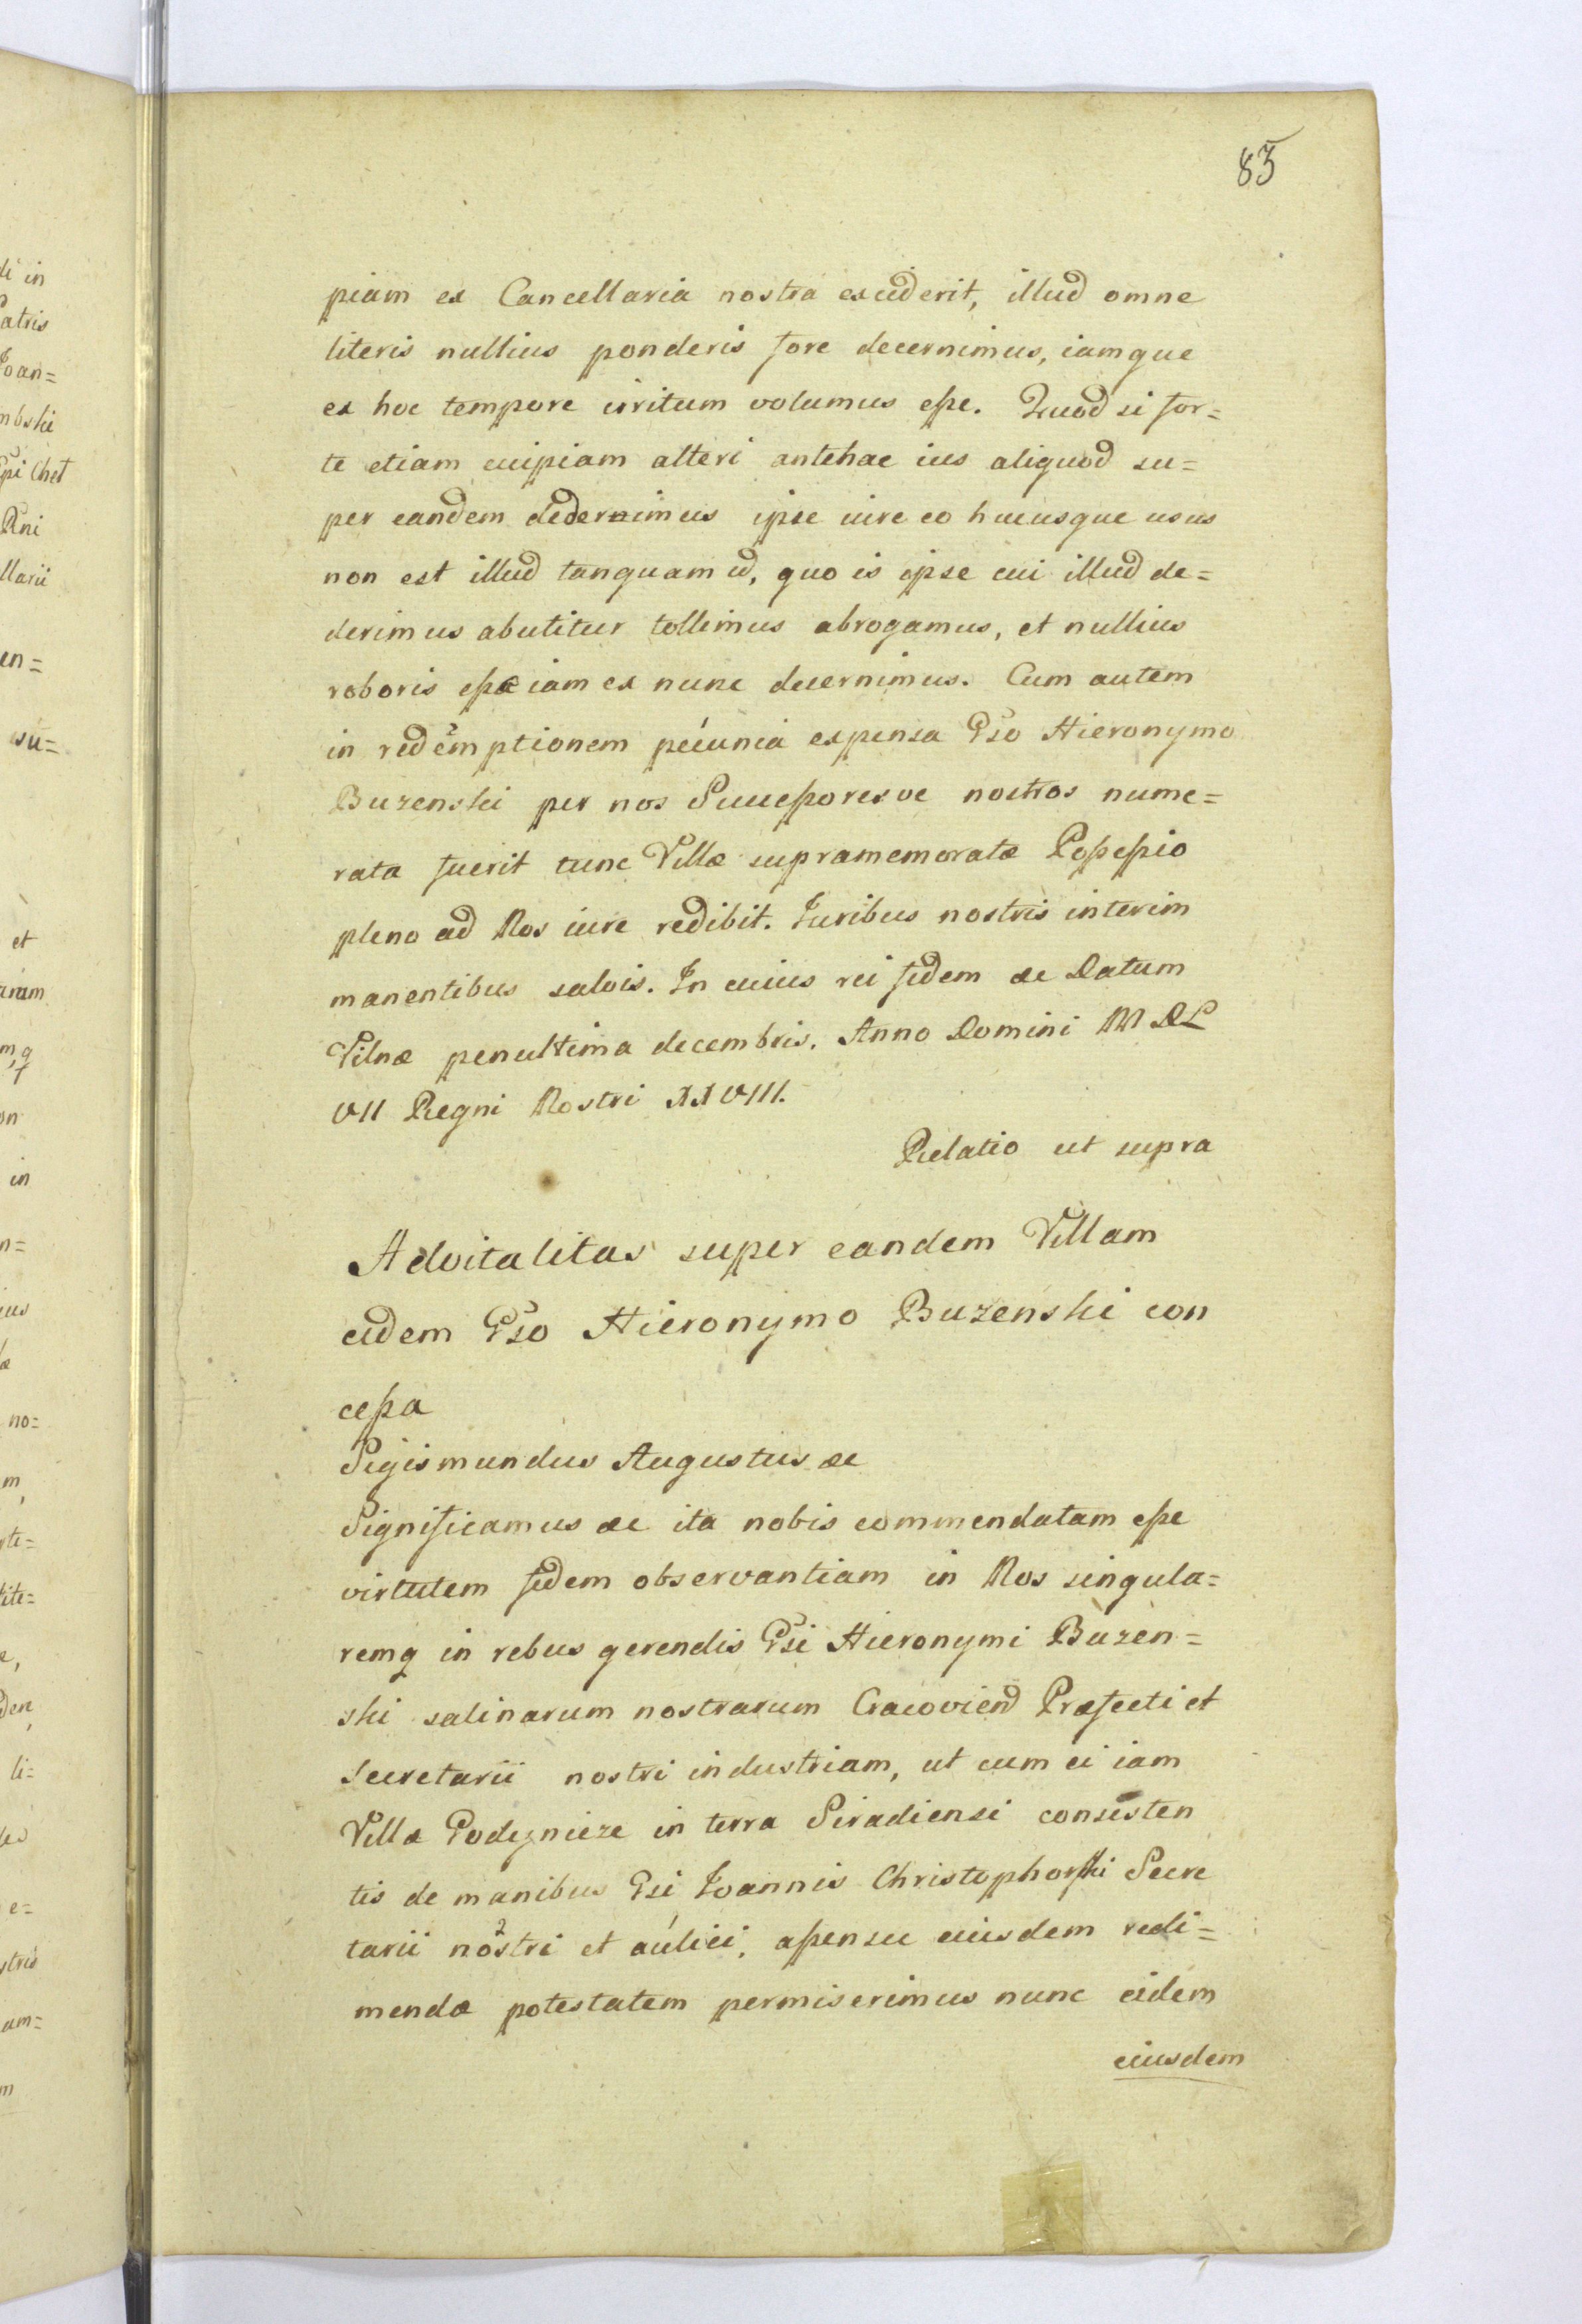 85
piam ex Cancellaria nostra exciderit, illud omne
literis nullius ponderis fore decernimus, iamque
ex hoc tempore irritum volumus esse. Quod si for=
te etiam cuipiam alteri antehac ius aliquod su=
per eandem dedernimus ipse iure eo hucusque usus
non est illud tanquam id, quo is ipse cui illud de=
derimus abutitur tollimus abrogamus, et nullius
roboris esse iam ex nunc decernimus. Cum autem
in redemptionem pecunia expensa Gso Hieronymo
Buzenski per nos Successoresve nostros nume=
rata fuerit tunc Villæ supramemoratæ Possessio
pleno ad Nos iure redibit. Juribus nostris interim
manentibus salvis. In cuius rei fidem &c Datum
Vilnæ penultima decembris. Anno Domini MDL
VII Regni Nostri XXVIII.
Relatio ut supra
Advitalitas super eandem Villam
eidem Gso Hieronymo Buzenski con
cessa
Sigismundus Augustus &c
Significamus &c ita nobis commendatam esse
virtutem fidem observantiam in Nos singula=
remq in rebus gerendis Gsi Hieronymi Buzen=
ski salinarum nostrarum Cracoviend Præfecti et
Secretarii nostri industriam, ut cum ei iam
Villæ in terra Siradiensi consisten
tis de manibus Gsi Joannis Christophorski Secre
tarii nostri et aulici, assensu eiusdem redi=
mendæ potestatem permiserimus nunc eidem
eiusdem
di in
atris
Joan=
mbski
Epi Chel
Dni
llarii
en=
su=
et
aram
on
in
n=
ius
no=
m,
rte=
lite=
e,
li=
e=
stris
am=
m